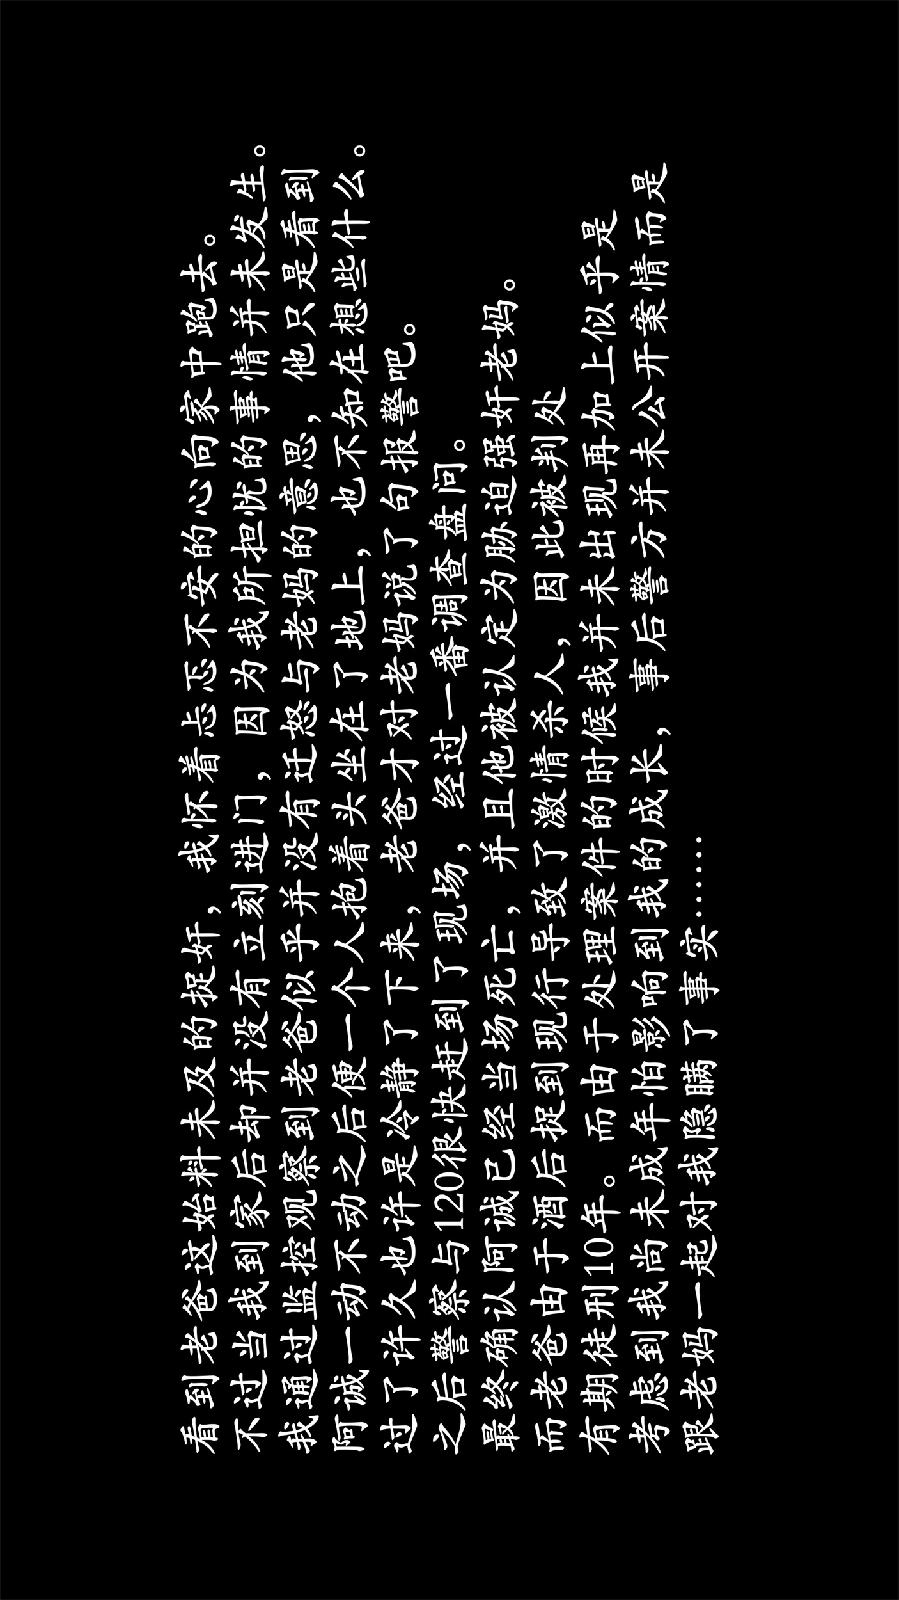 看到老爸这始料未及的捉奸，我怀着忐忑不安的心向家中跑去。
不过当我到家后却并没有立刻进门，因为我所担忧的事情并未发生。
我通过监控观察到老爸似乎并没有迁怒与老妈的意思，他只是看到
阿诚一动不动之后便一个人抱着头坐在了地上，也不知在想些什么。
过了许久也许是冷静了下来，老爸才对老妈说了句报警吧。
之后警察与120很快赶到了现场，经过一番调查盘问。
最终确认阿诚已经当场死亡，并且他被认定为胁迫强奸老妈。
而老爸由于酒后捉到现行导致了激情杀人，因此被判处
有期徒刑10年。而由于处理案件的时候我并未出现再加上似乎是
考虑到我尚未成年怕影响到我的成长，事后警方并未公开案情而是
跟老妈一起对我隐瞒了事实……